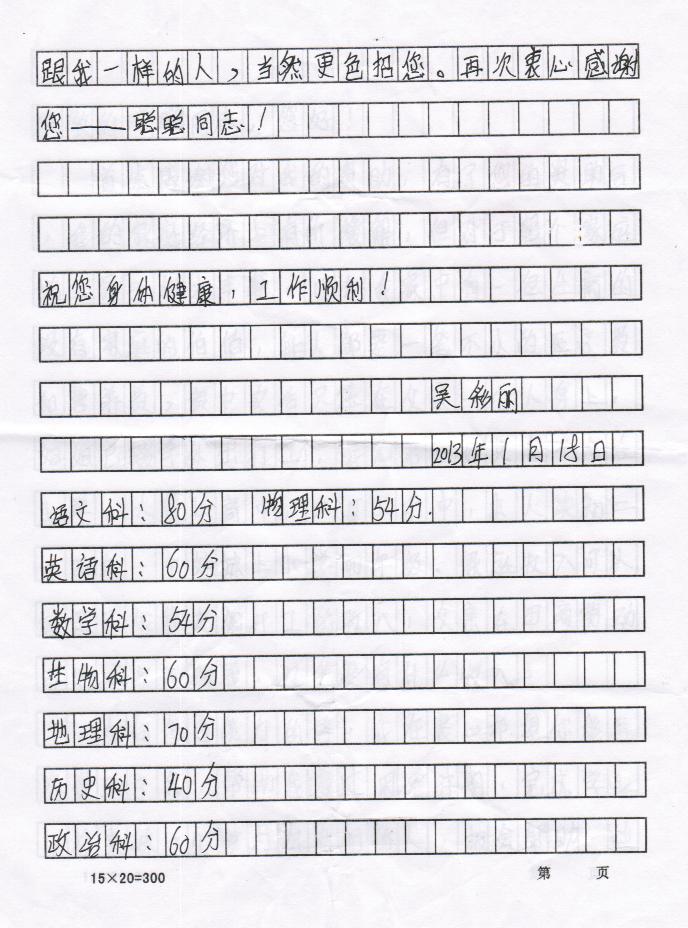 跟我一样的人，当然更包括您。再次衷心感谢
您——聪聪同志！
祝您身体健康，工作顺利！
吴彩丽
2013年1月18日
语文科：80分 物理科：54分.
英语科：60分
数学科：54分
生物科：60分
地理科：70分
历史科：40分
政治科：60分
15×20=300 第 页